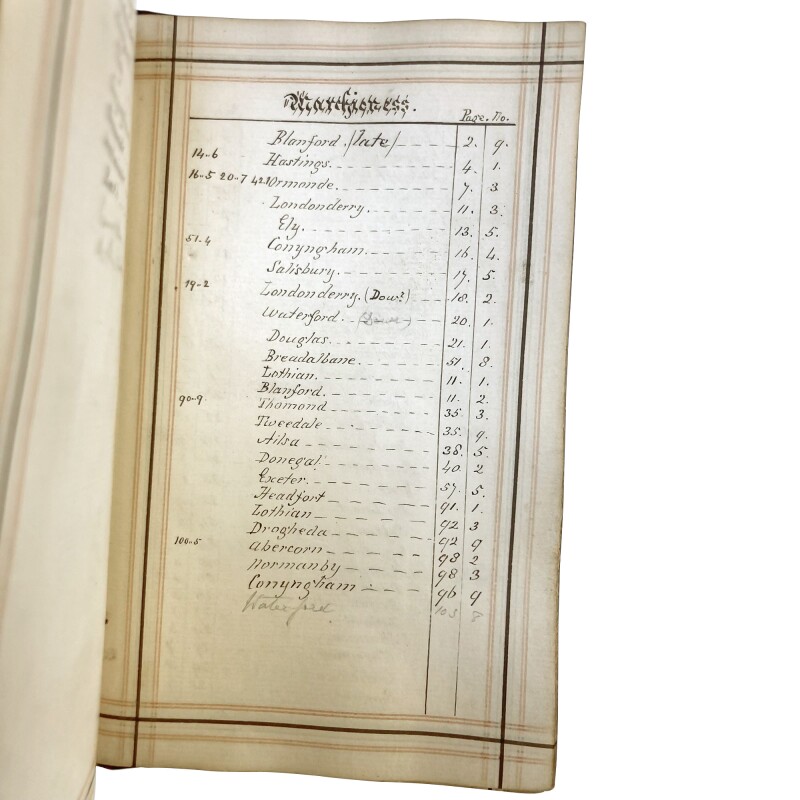 Marchioness.
Page. No.
Blanford. (late) 2. 9.
14..6 Hastings. 4. 1.
16..5 20..7 42.1 Ormonde. 7. 3
Londonderry. 11. 3.
Ely. 13. 5.
51.4 Conyngham. 16. 4.
Salisbury. 17. 5.
19..2 Londonderry. (Dowr.) 18. 2.
Waterford. (Dowr) 20. 1.
Douglas. 21. 1.
Breadalbane. 51. 8.
Lothian. 11. 1.
Blanford. 11. 2.
90..9 Thomond 35 3.
Tweedale 35. 9.
Ailsa 38. 5.
Donegal 40. 2
Exeter. 57. 5.
Headfort 91. 1.
Lothian 92 3
Drogheda 92 9
100..5 Abercorn 98 2
Normanby 98 3
Conyngham 96 9
Waterford 103 8